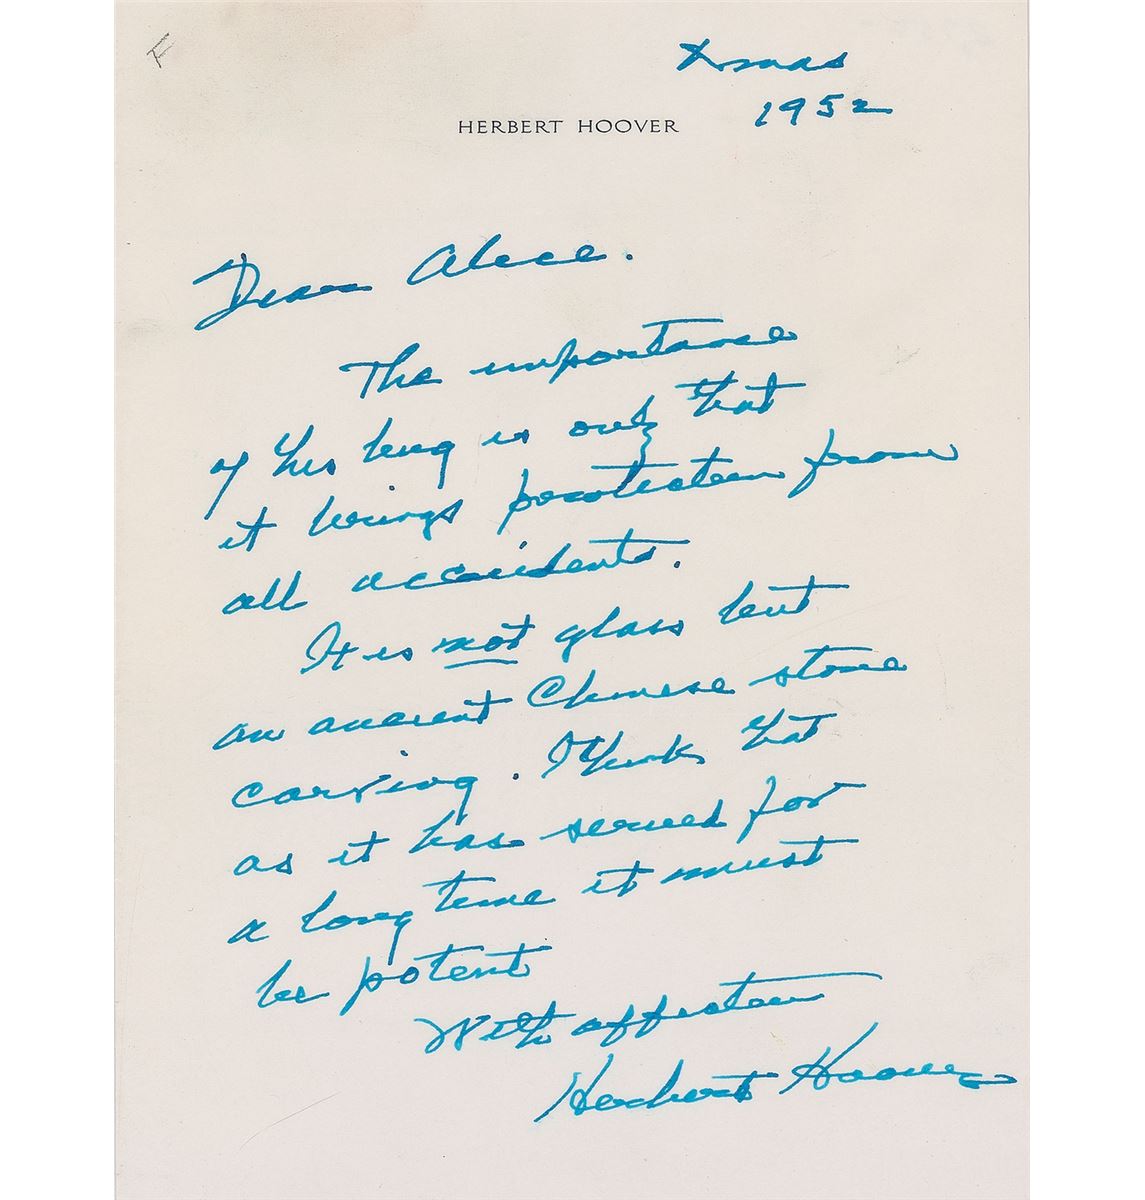 F
Xmas
1952
HERBERT HOOVER
Dear Alice.
The importance
of this bug is only that
it brings protection from
all accidents.
It is not glass but
an ancient Chinese stone
carving. I think that
as it has served for
a long time it must
be potent
With affection
Herbert Hoover